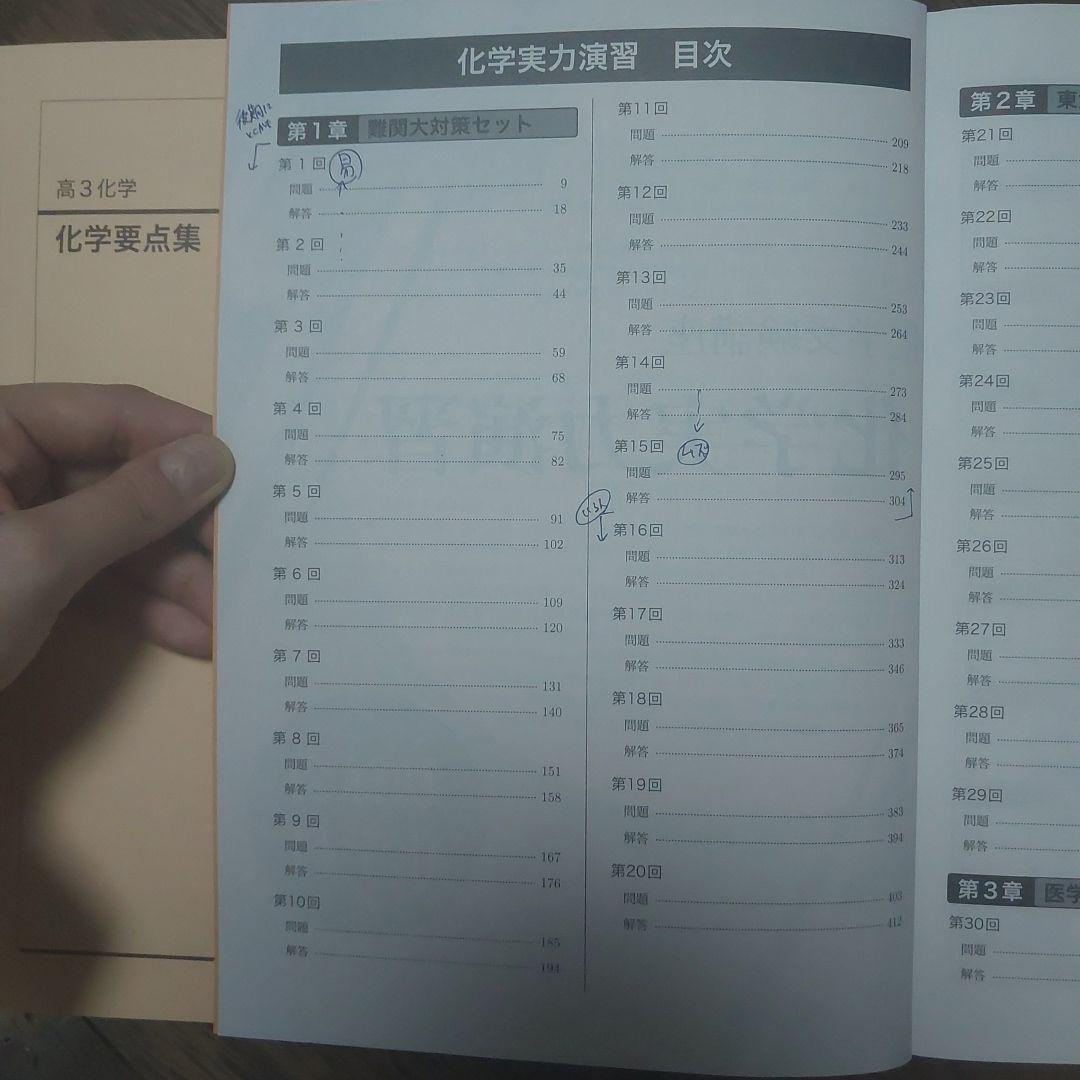 高3化学
化学要点集
化学実力演習 目次
第1章 難関大対策セット
第1回
問題 9
解答 18
第2回
問題 35
解答 44
第3回
問題 59
解答 68
第4回
問題 75
解答 82
第5回
問題 91
解答 102
第6回
問題 109
解答 120
第7回
問題 131
解答 140
第8回
問題 151
解答 158
第9回
問題 167
解答 176
第10回
問題 185
解答 194
第11回
問題 209
解答 218
第12回
問題 233
解答 244
第13回
問題 253
解答 264
第14回
問題 273
解答 284
第15回
問題 295
解答 304
第16回
問題 313
解答 324
第17回
問題 333
解答 346
第18回
問題 365
解答 374
第19回
問題 383
解答 394
第20回
問題 403
解答 412
第2章
第21回
問題
解答
第22回
問題
解答
第23回
問題
解答
第24回
問題
解答
第25回
問題
解答
第26回
問題
解答
第27回
問題
解答
第28回
問題
解答
第29回
問題
解答
第3章 医学
第30回
問題
解答